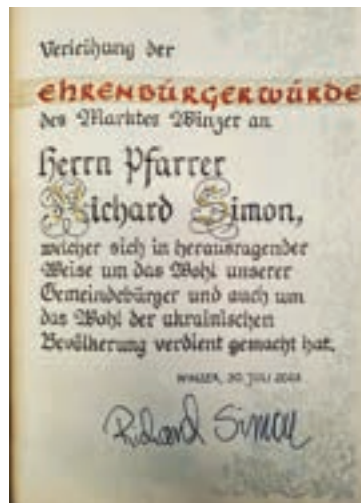 Verleihung der
EHRENBÜRGERWÜRDE
des Marktes Winzer an
Herrn Pfarrer
Richard Simon,
welcher sich in herausragender
Weise um das Wohl unserer
Gemeindebürger und auch um
das Wohl der ukrainischen
Bevölkerung verdient gemacht hat.
WINZER, 30. JULI
Richard Simon